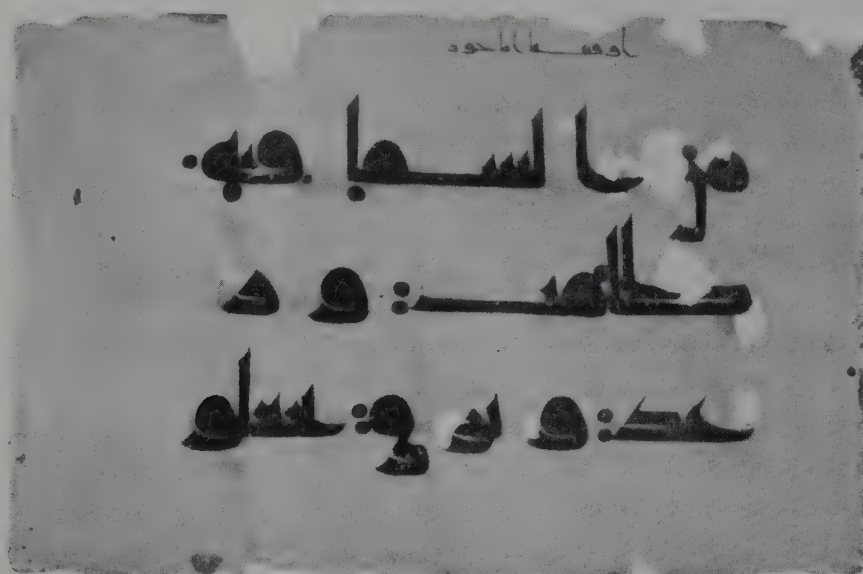 من السما فيه
ظلمت و ر
عد و برق يجعلو